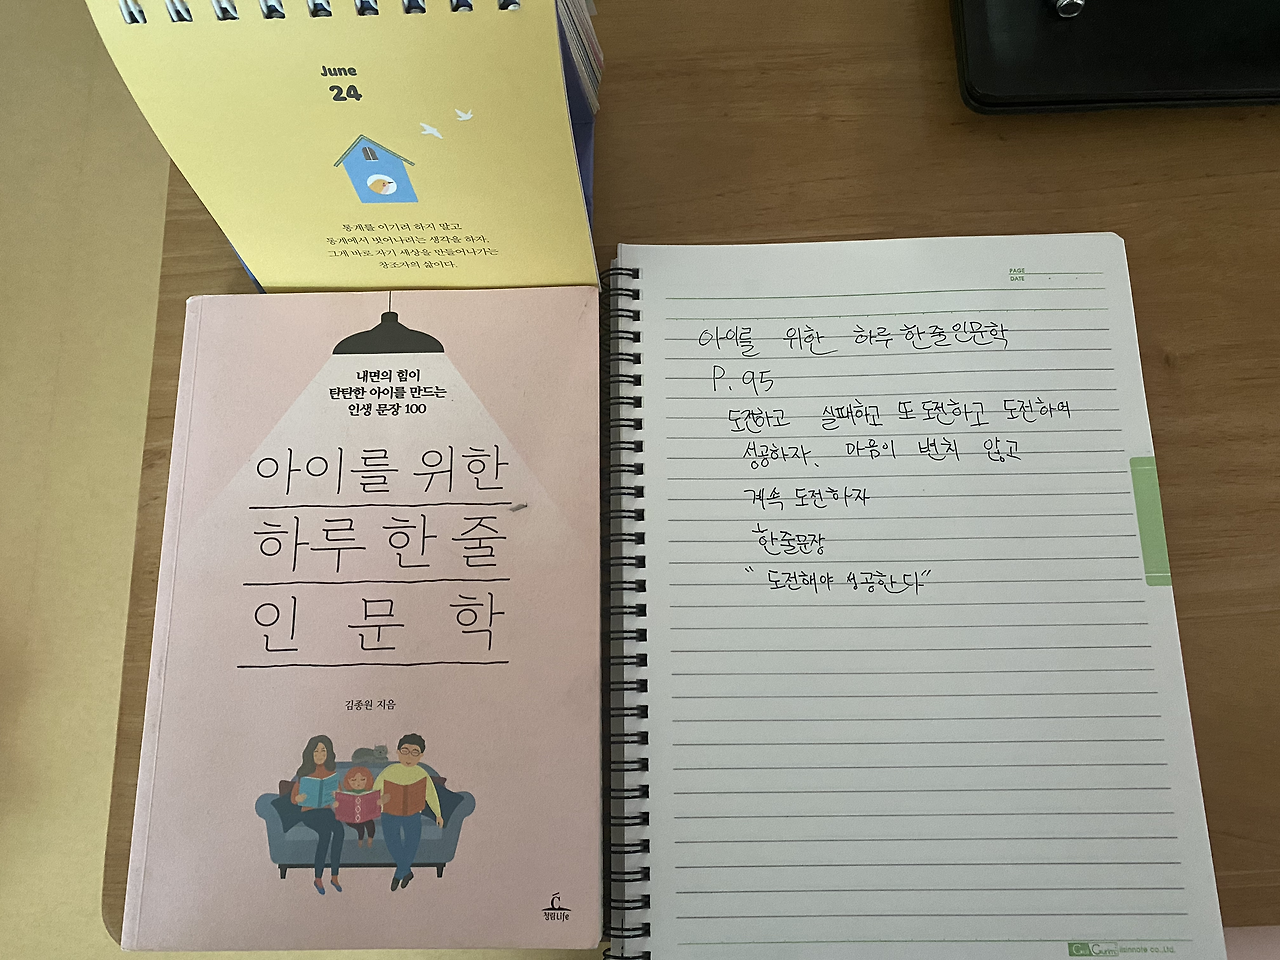 June
24
통계를 이기려 하지 말고
통계에서 벗어나려는 생각을 하자.
그게 바로 자기 세상을 만들어나가는
창조자의 삶이다.
내면의 힘이
탄탄한 아이를 만드는
인생 문장 100
아이를 위한
하루 한 줄
인문학
김종원 지음
청림Life
PAGE
DATE
아이를 위한 하루 한줄인문학
P. 95
도전하고 실패하고 또 도전하고 도전하여
성공하자. 마음이 변치 않고
계속 도전하자
한줄문장
“도전해야 성공한다”